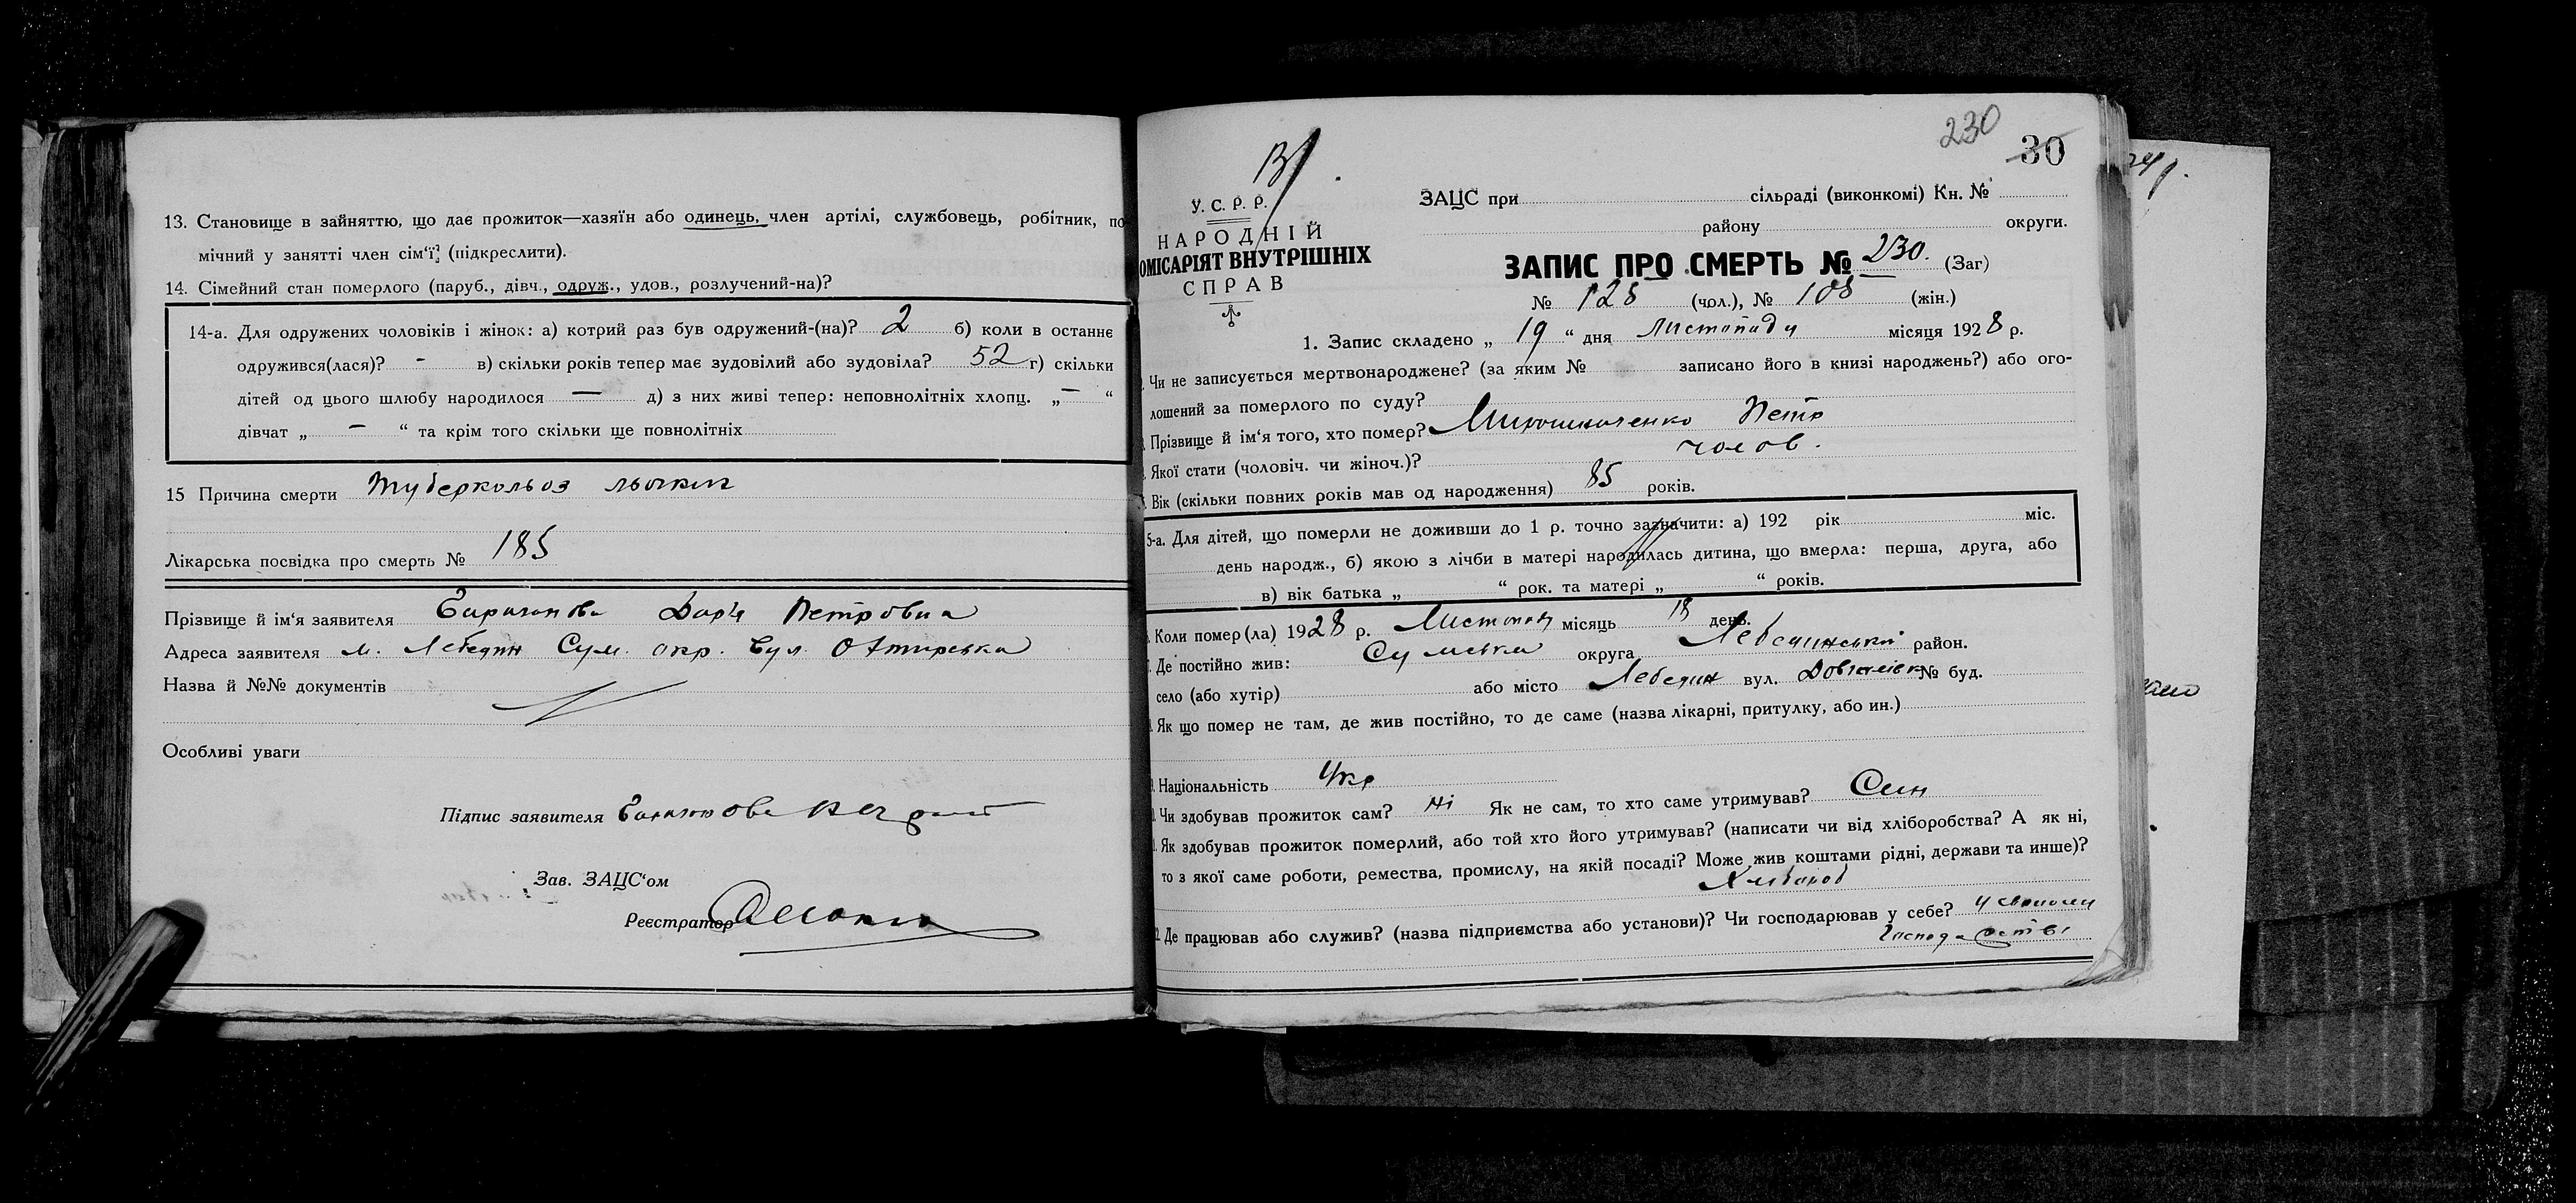 13. Становище в зайняттю, що дає прожиток—хазяїн або одинець, член артілі, службовець, робітник, по
мічний у занятті член сім‘ї (підкреслити).
14. Сімейний стан померлого (паруб., дівч., одруж., удов., розлучений-на)?
14-а. Для одружених чоловіків і жінок: а) котрий раз був одружений-(на)? 2 б) коли в останнє
одружився(лася)? - в) скільки років тепер має зудовілий або зудовіла? 52 г) скільки
дітей од цього шлюбу народилося — д) з них живі тепер: неповнолітніх хлопц. „ — “
дівчат „ — “ та крім того скільки ще повнолітніх
15 Причина смерти Туберкольоз
Лікарська посвідка про смерть № 185
Прізвище й ім‘я заявителя Дар'я Петровна
Адреса заявителя м. Лебедин Сум. окр. Вул.
Назва й №№ документів
Особливі уваги
Підпис заявителя
Зав. ЗАЦС‘ом
Реєстратор
230
30
У. С. Р. Р.
НАРОДНІЙ
ОМІСАРІЯТ ВНУТРІШНІХ
СПРАВ
ЗАЦС при сільраді (виконкомі) Кн. №
району округи.
ЗАПИС ПРО СМЕРТЬ № 230. (Заг)
№ 128 (чол.), № 108 (жін.)
1. Запис складено „ 19 “ дня Листопаду місяця 1928 р.
Чи не записується мертвонароджене? (за яким № записано його в книзі народжень?) або ого-
лошений за померлого по суду?
Прізвище й ім‘я того, хто помер? Мирошниченко Петр
Якої стати (чоловіч. чи жіноч.)? чолов.
Вік (скільки повних років мав од народження) 85 років.
5-а. Для дітей, що померли не доживши до 1 р. точно зазначити: а) 192 рік міс.
день народж., б) якою з лічби в матері народилась дитина, що вмерла: перша, друга, або
в) вік батька „ “ рок. та матері „ “ років.
Коли помер(ла) 1928 р. Листопад місяць 18 день.
Де постійно жив: Сумська округа Лебединський район.
село (або хутір) або місто Лебедин вул. № буд.
Як що помер не там, де жив постійно, то де саме (назва лікарні, притулку, або ин.)
Національність Укр
Чи здобував прожиток сам? ні Як не сам, то хто саме утримував? Син
Як здобував прожиток померлий, або той хто його утримував? (написати чи від хліборобства? А як ні,
то з якої саме роботи, ремества, промислу, на якій посаді? Може жив коштами рідні, держави та инше)?
Хлібороб
Де працював або служив? (назва підприємства або установи)? Чи господарював у себе? у своєму
господарстві